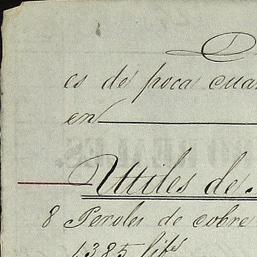 es de poca cuan
en
Utiles de
8 Peroles de cobre
1385 lib^s